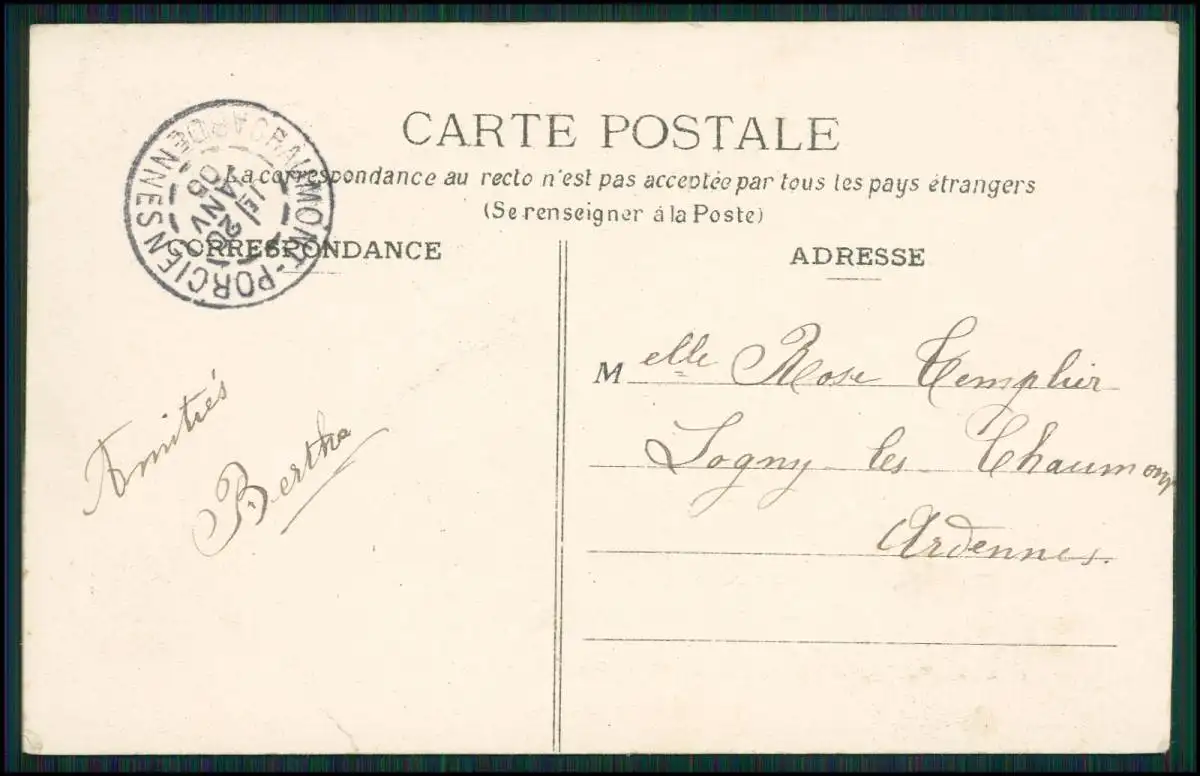 CARTE POSTALE
La correspondance au recto n'est pas acceptée par tous les pays étrangers
(Se renseigner à la Poste)
CORRESPONDANCE
ADRESSE
CHAUMONT-PORCIEN ARDENNES
1E
JANV
05
Melle Rose Templier
Logny-les-Chaumont
Ardennes.
Amitiés
Berthe